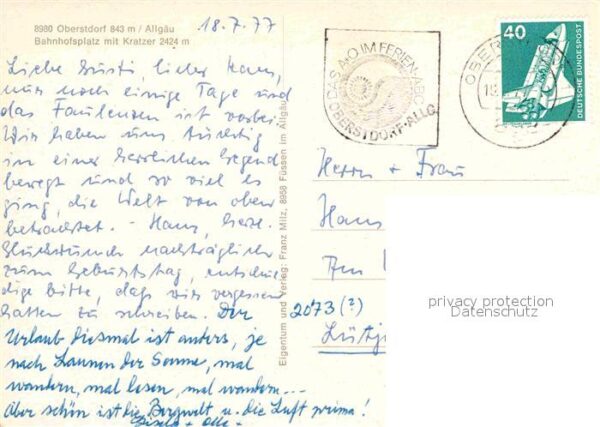 8980 Oberstdorf 843 m / Allgäu
Bahnhofsplatz mit Kratzer 2424 m
18.7.77
Liebe Gusti, lieber Hans,
nur noch einige Tage und
das Faulenzen ist vorbei.
Wir haben uns tüchtig
in einer herrlichen Gegend
bewegt und so viel es
ging, die Welt von oben
betrachtet. - Hans, herzl.
Glückwunsch nachträglich
zum Geburtstag, entschul
dige bitte, daß wir vergessen
hatten zu schreiben. Der
Urlaub diesmal ist anders, je
nach Launen der Sonne, mal
wandern, mal lesen, mal wandern...
Aber schön ist die Bergwelt u. die Luft prima!
Gisela +
Eigentum und Verlag: Franz Milz, 8958 Füssen im Allgäu
DAS A+O IM FERIEN-ABC
OBERSTDORF-ALLG
40
DEUTSCHE BUNDESPOST
Herrn + Frau
Hans
Am
2073 (?)
Lütj
privacy protection
Datenschutz